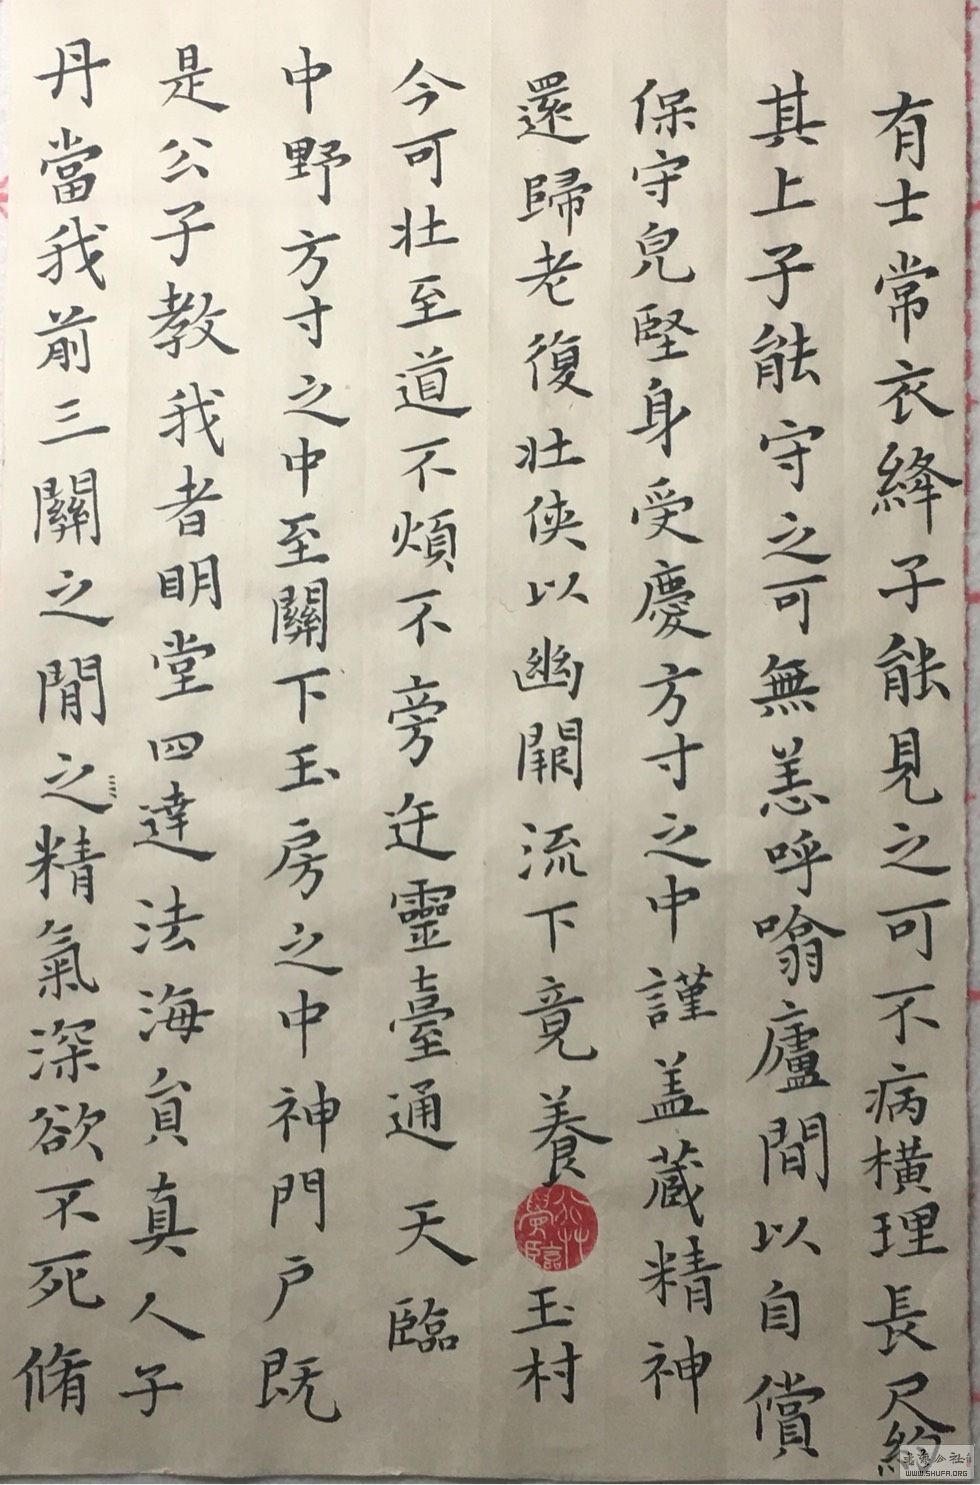 有士常衣絳子能見之可不病橫理長尺約
其上子能守之可無恙呼噏廬間以自償
保守皃堅身受慶方寸之中謹盖藏精神
還歸老復壯俠以幽闕流下竟養玉村
今可壯至道不煩不旁迕靈臺通天臨
中野方寸之中至關下玉房之中神門户既
是公子教我者明堂四達法海負真人子
丹當我前三關之閒之精氣深欲不死脩
書法公社
WWW.SHUFA.ORG